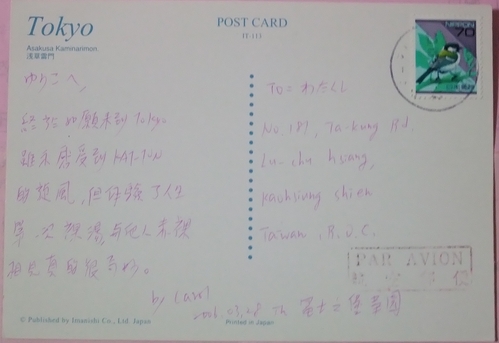 Tokyo
Asakusa Kaminarimon
浅草雷門
POST CARD
NIPPON
70
日本郵便
ゆりこへ,
終於如願來到 Tokyo
雖未感受到 KAT-TUN
的颱風,但体驗了人生
第一次裸湯,與他人赤裸
相見真的很奇妙。
by Carol
To: わたくし
No.181, Ta-kung Rd.
Lu-chu hwang,
Kaohsiung shien
Taiwan, R.O.C.
PAR AVION
航空郵便
© Published by Imanishi Co., Ltd. Japan
Printed in Japan